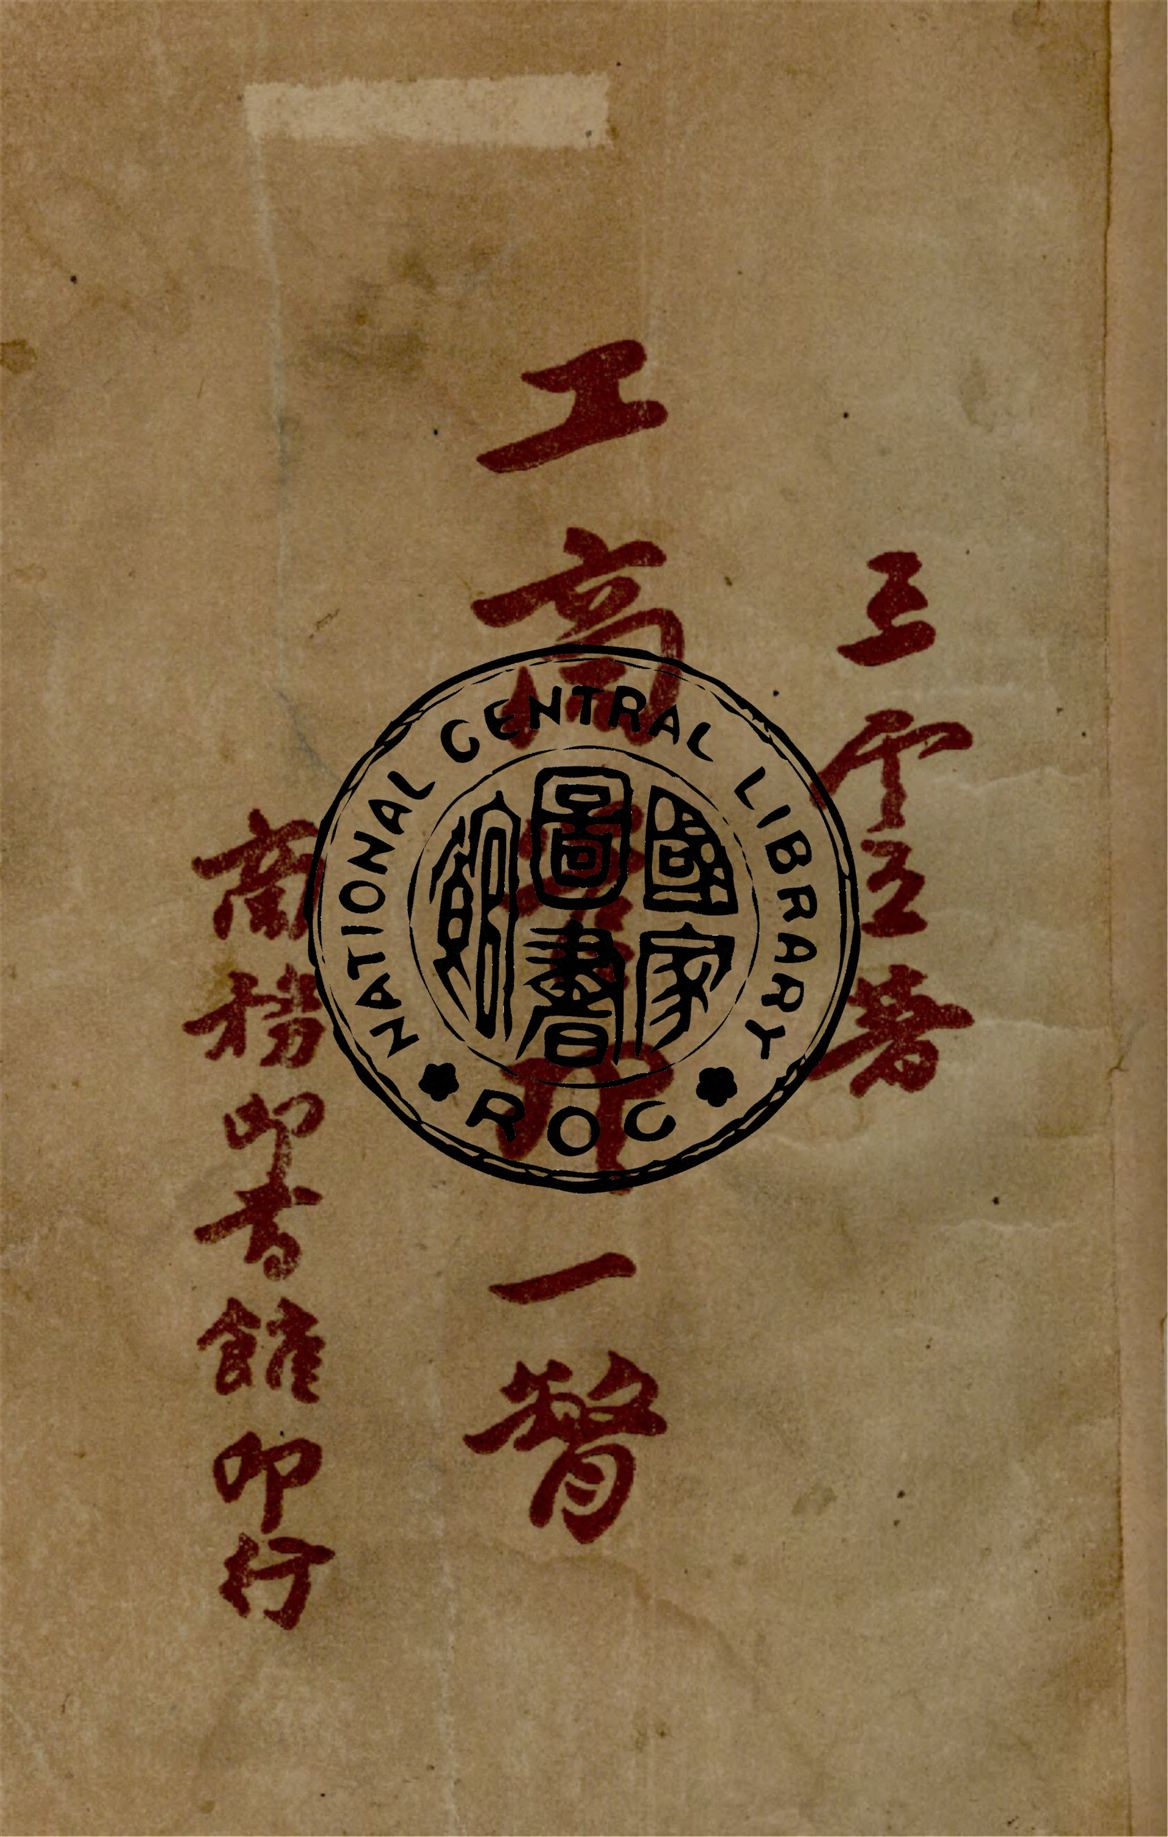 王雲五著
工商
一瞥
商務印書館印行
NATIONAL CENTRAL LIBRARY
國家圖書館
ROC